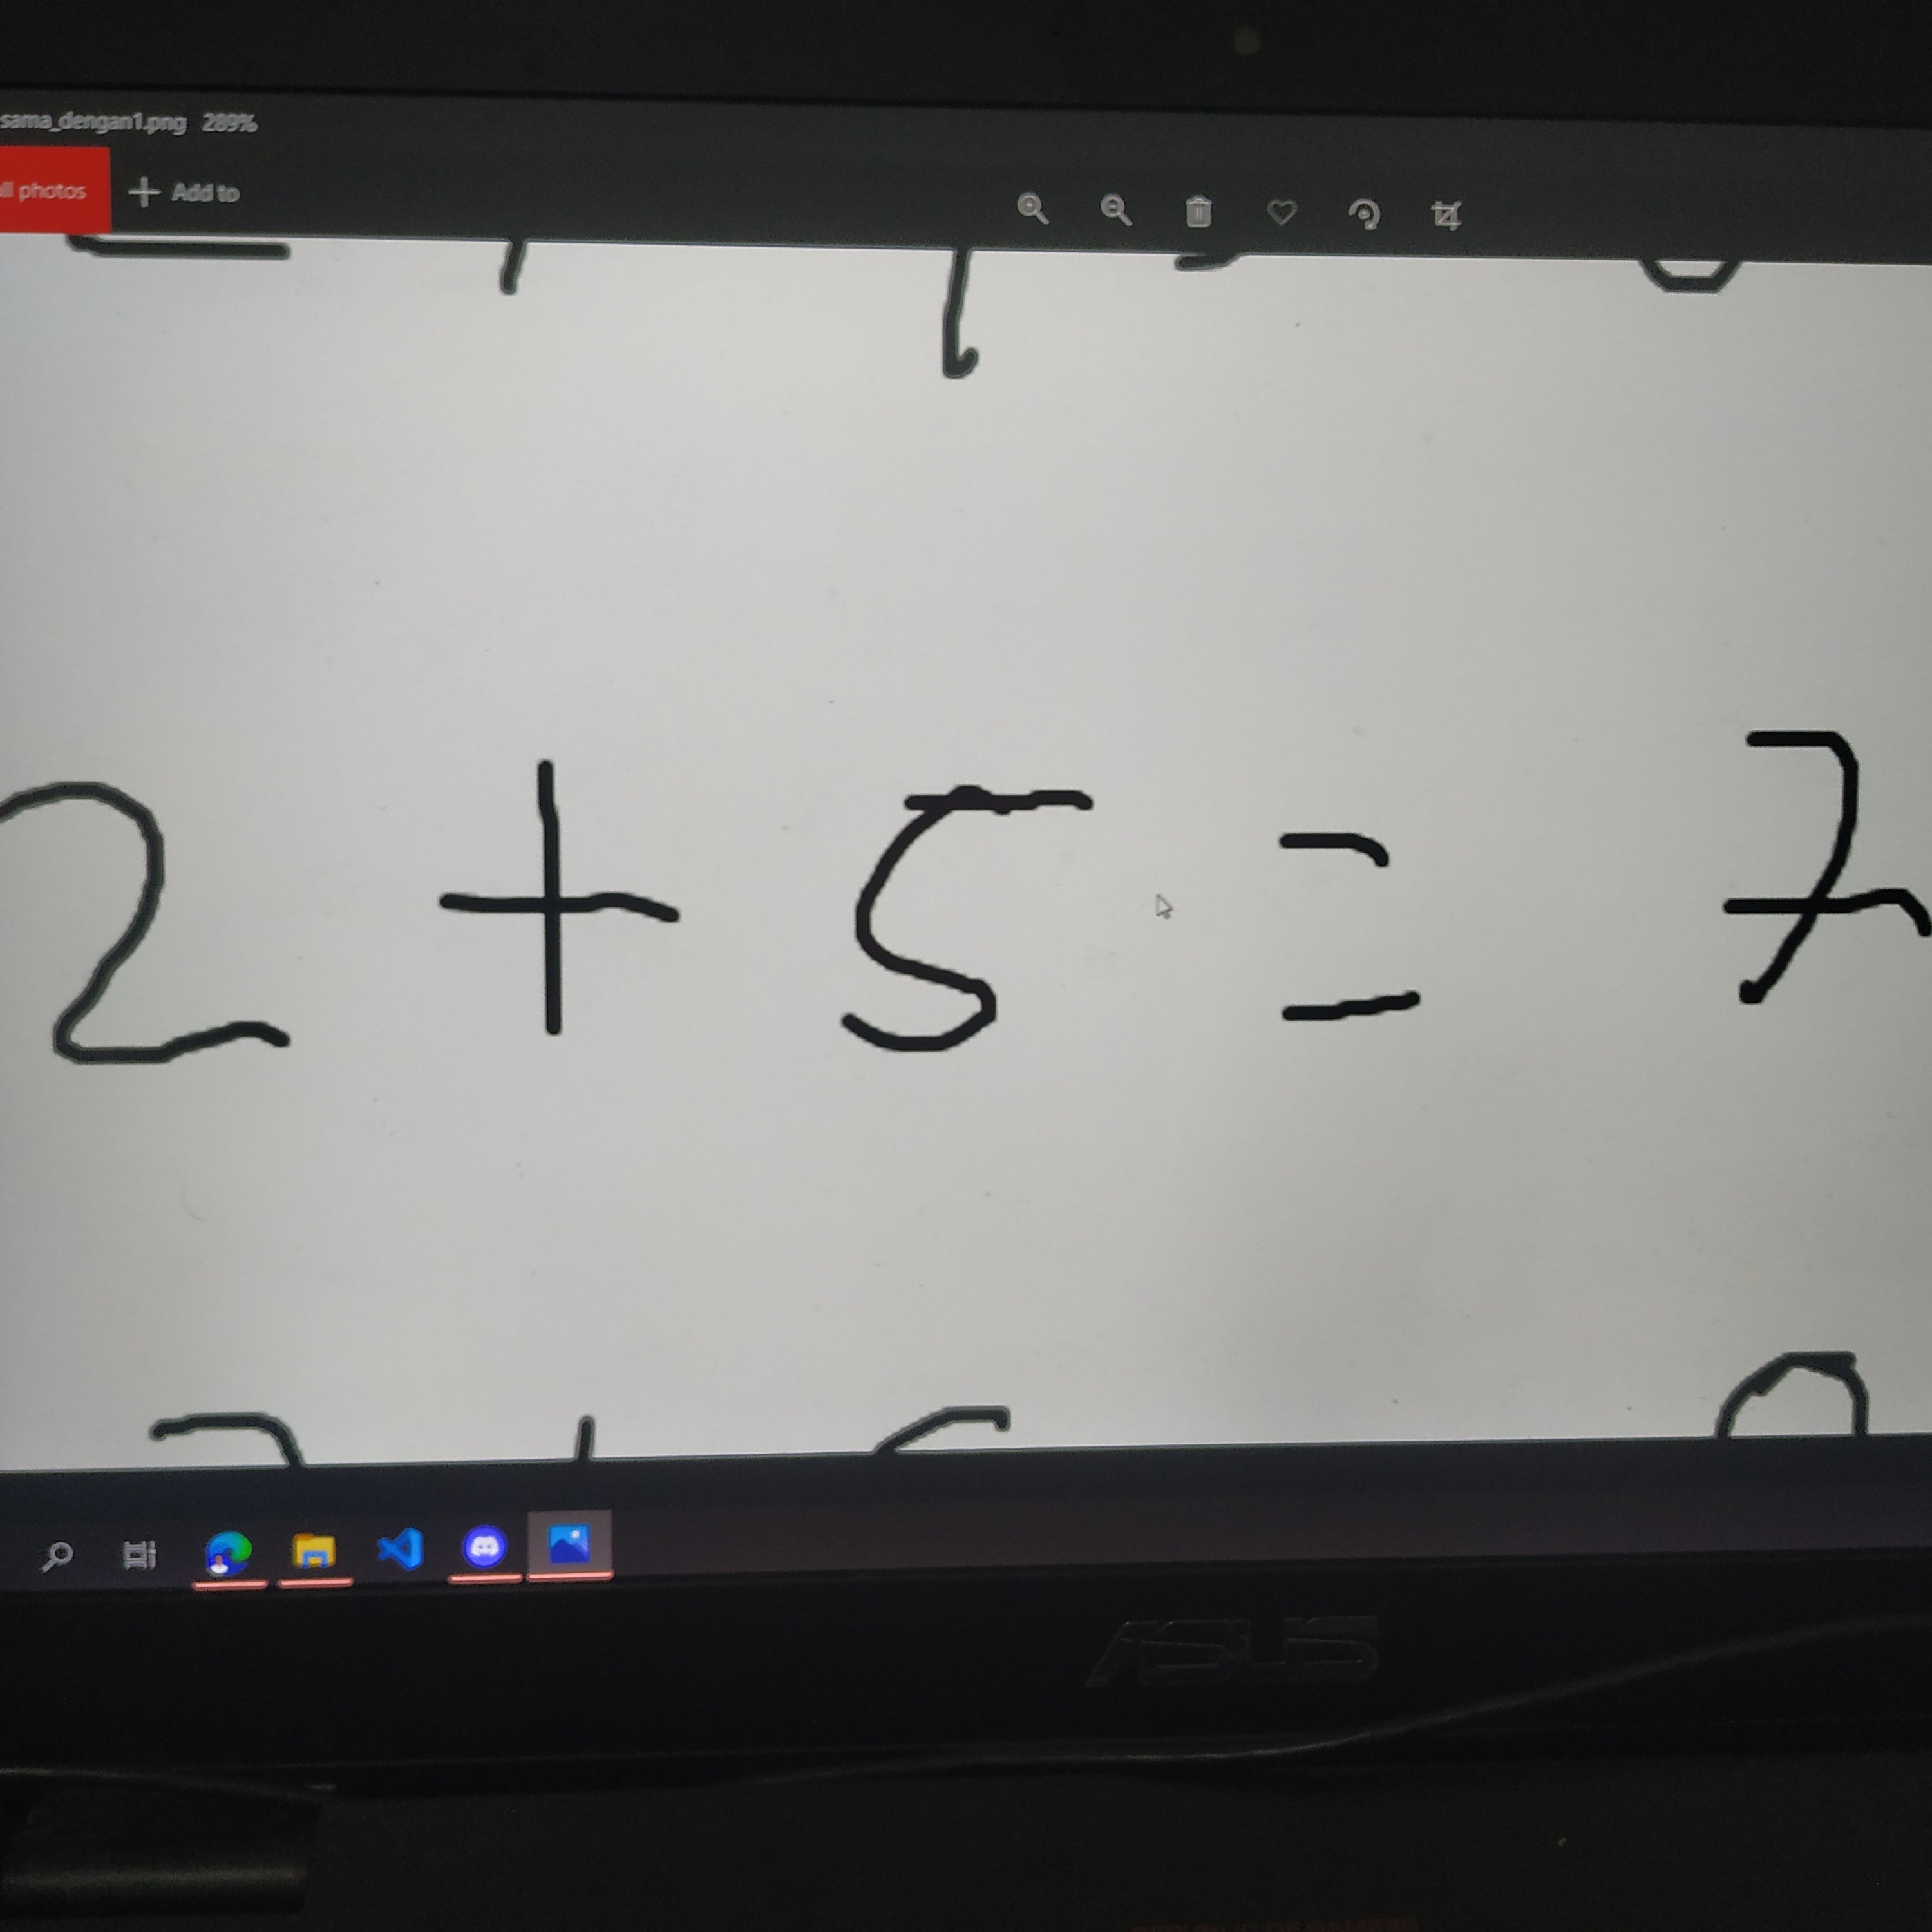 sama_dengan1.png 289%
ll photos + Add to
2 + 5 = 7
ASUS